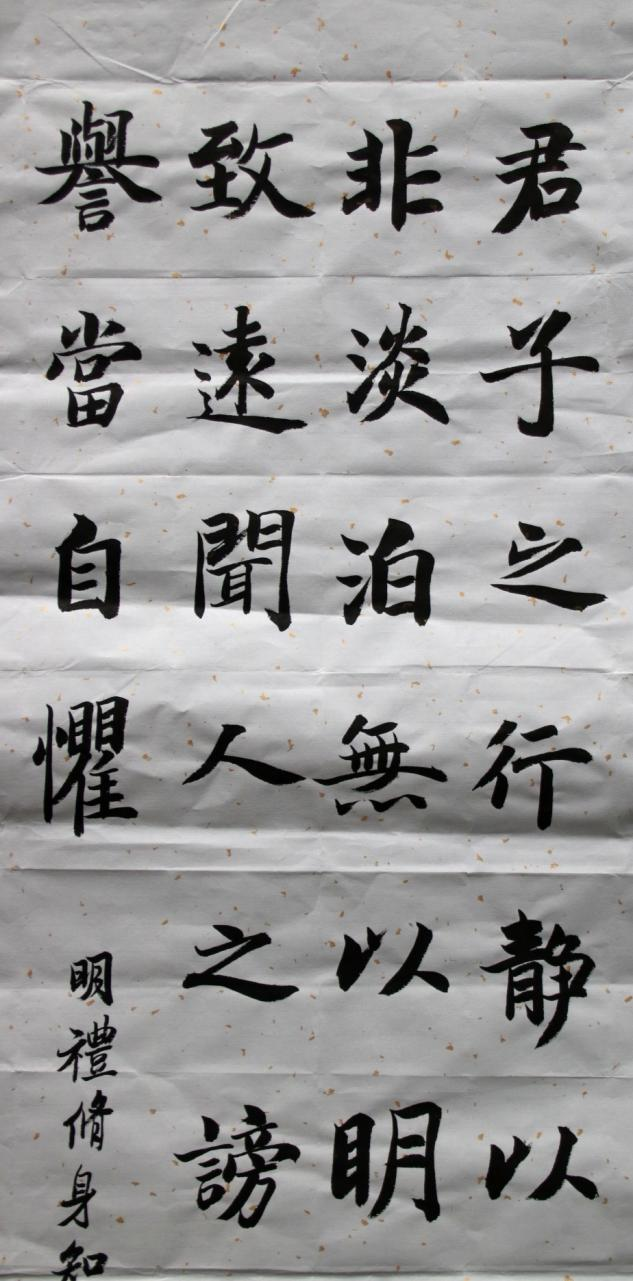 君子之行靜以
非淡泊無以明
致遠聞人之謗
譽當自懼
明禮脩身知